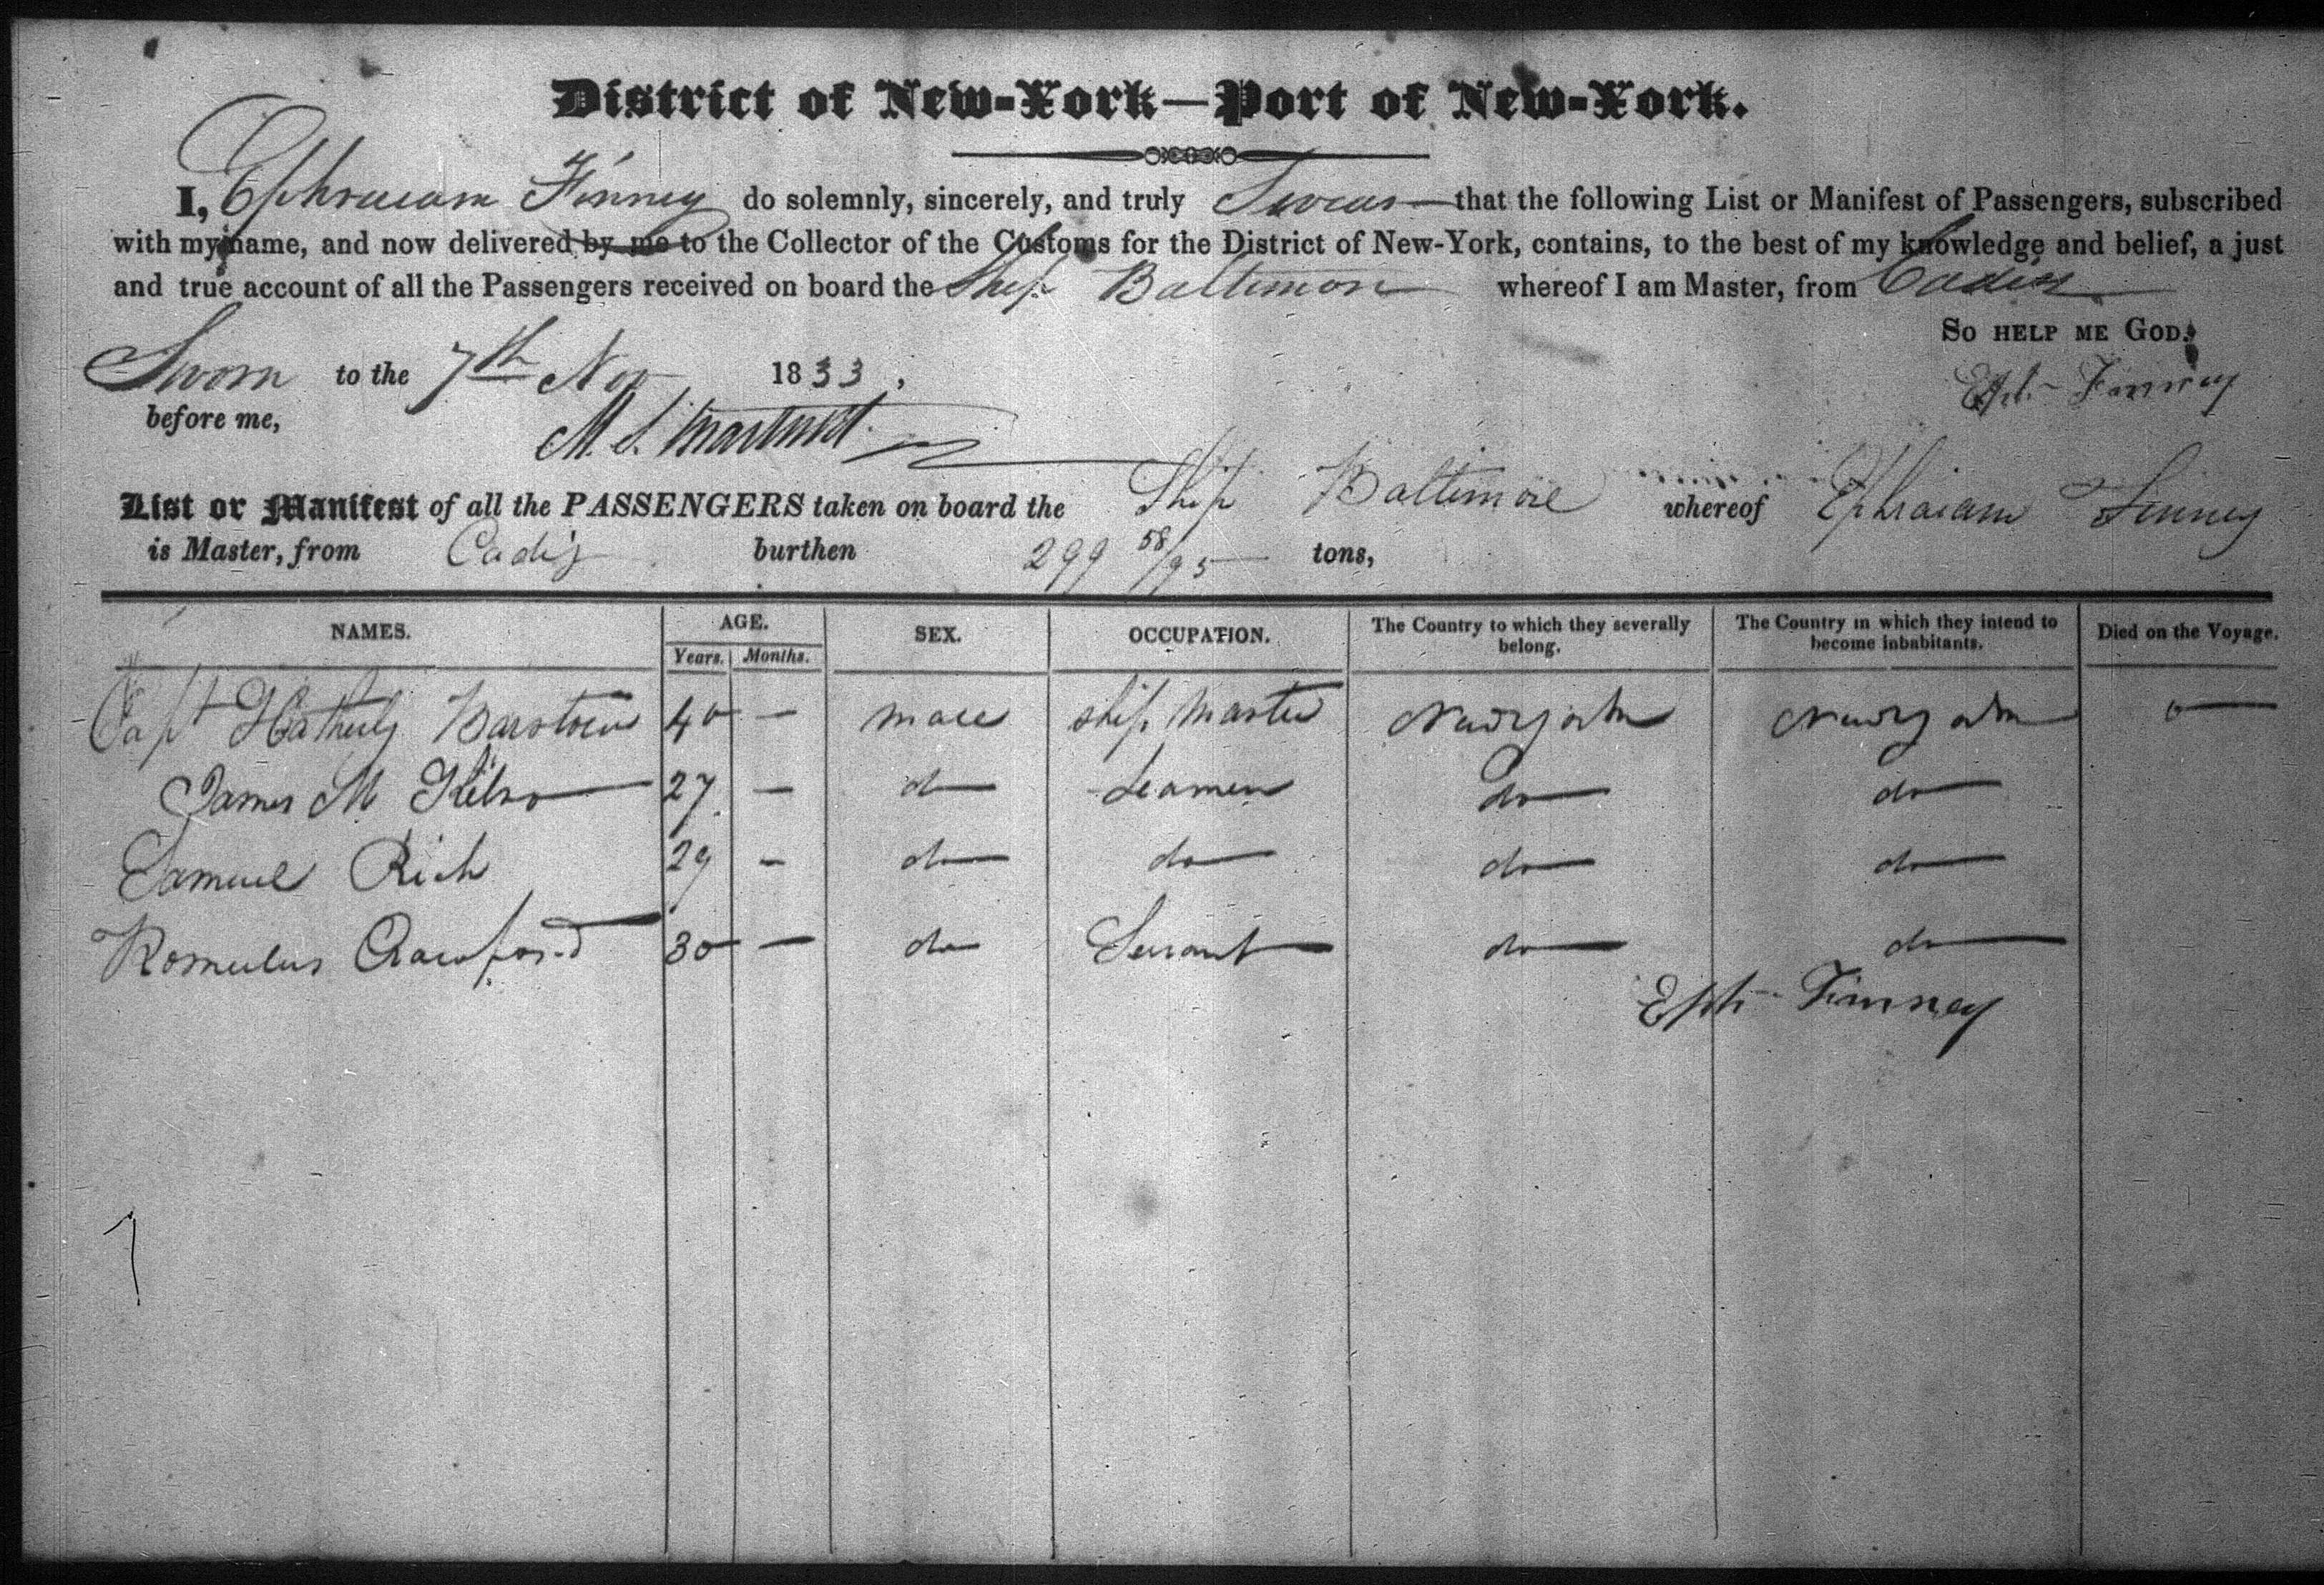 District of New-York—Port of New-York.
I, Ephraiam Finney do solemnly, sincerely, and truly Swear that the following List or Manifest of Passengers, subscribed
with my name, and now delivered by me to the Collector of the Customs for the District of New-York, contains, to the best of my knowledge and belief, a just
and true account of all the Passengers received on board the Ship Baltimore whereof I am Master, from Cadiz
So help me God.
Sworn to the 7th Nov 1833,
Eph Finney
before me,
List or Manifest of all the PASSENGERS taken on board the Ship Baltimore whereof Ephraiam Finney
is Master, from Cadiz burthen 299 58/95 tons,
NAMES. AGE. SEX. OCCUPATION. The Country to which they severally belong. The Country in which they intend to become inhabitants. Died on the Voyage.
Years. Months.
Capt Hatherly Barstow 40 — male ship Master Newyork Newyork 0
James M Kelso 27 — do Seamen do do
Samuel Rich 29 — do do do do
Romulus Crawford 30 — do Servant do do
Eph Finney